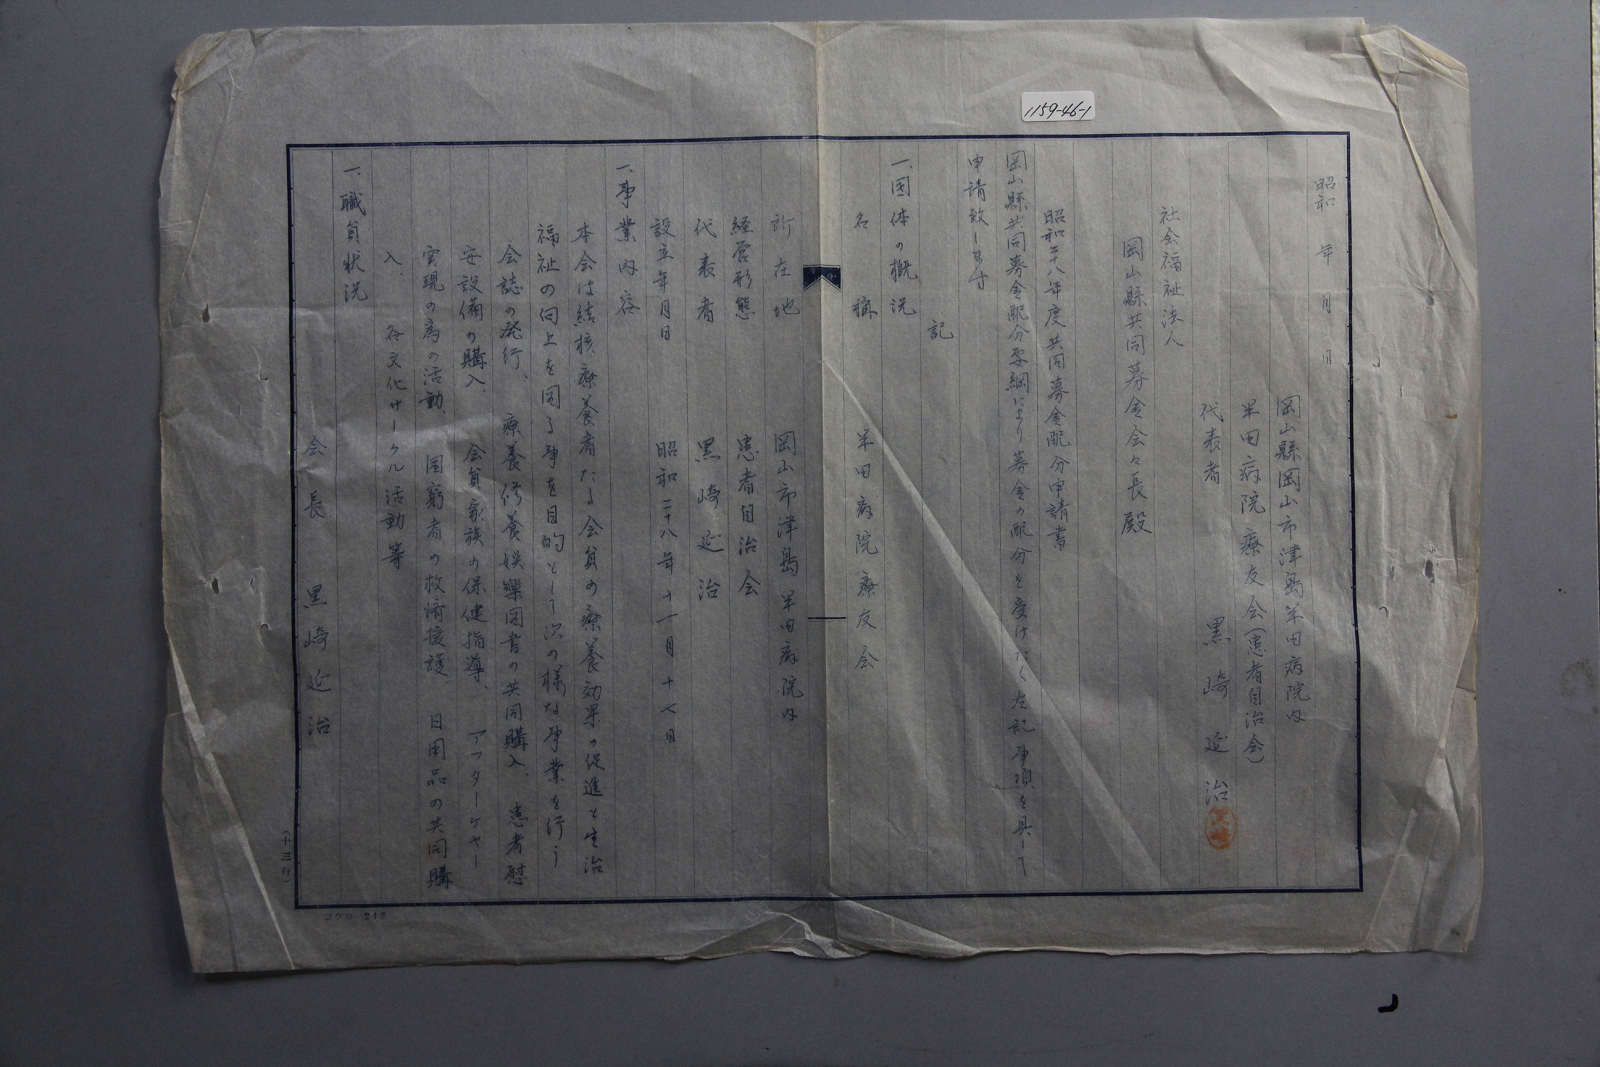 1159-46-1
昭和　年　月　日
岡山縣岡山市津島半田病院内
半田病院療友会(患者自治会)
代表者　黒崎延治
黒崎
社会福祉法人
岡山縣共同募金会々長殿
昭和二十八年度共同募金配分申請書
岡山縣共同募金配分要綱により募金の配分を受けたく左記事項を具して
申請致します
記
一、団体の概況
名称　半田病院療友会
所在地　岡山市津島半田病院内
経営形態　患者自治会
代表者　黒崎延治
設立年月日　昭和二十八年十一月十七日
一、事業内容
本会は結核療養者たる会員の療養効果の促進と生活
福祉の向上を図る事を目的として次の様な事業を行う
会誌の発行、療養修養娯樂図書の共同購入、患者慰
安設備の購入、会員家族の保健指導、アフターケヤー
実現の為の活動　困窮者の救済援護　日用品の共同購
入、各文化サークル活動等
一、職員状況
会長　黒崎延治
(十三行)
コクヨ